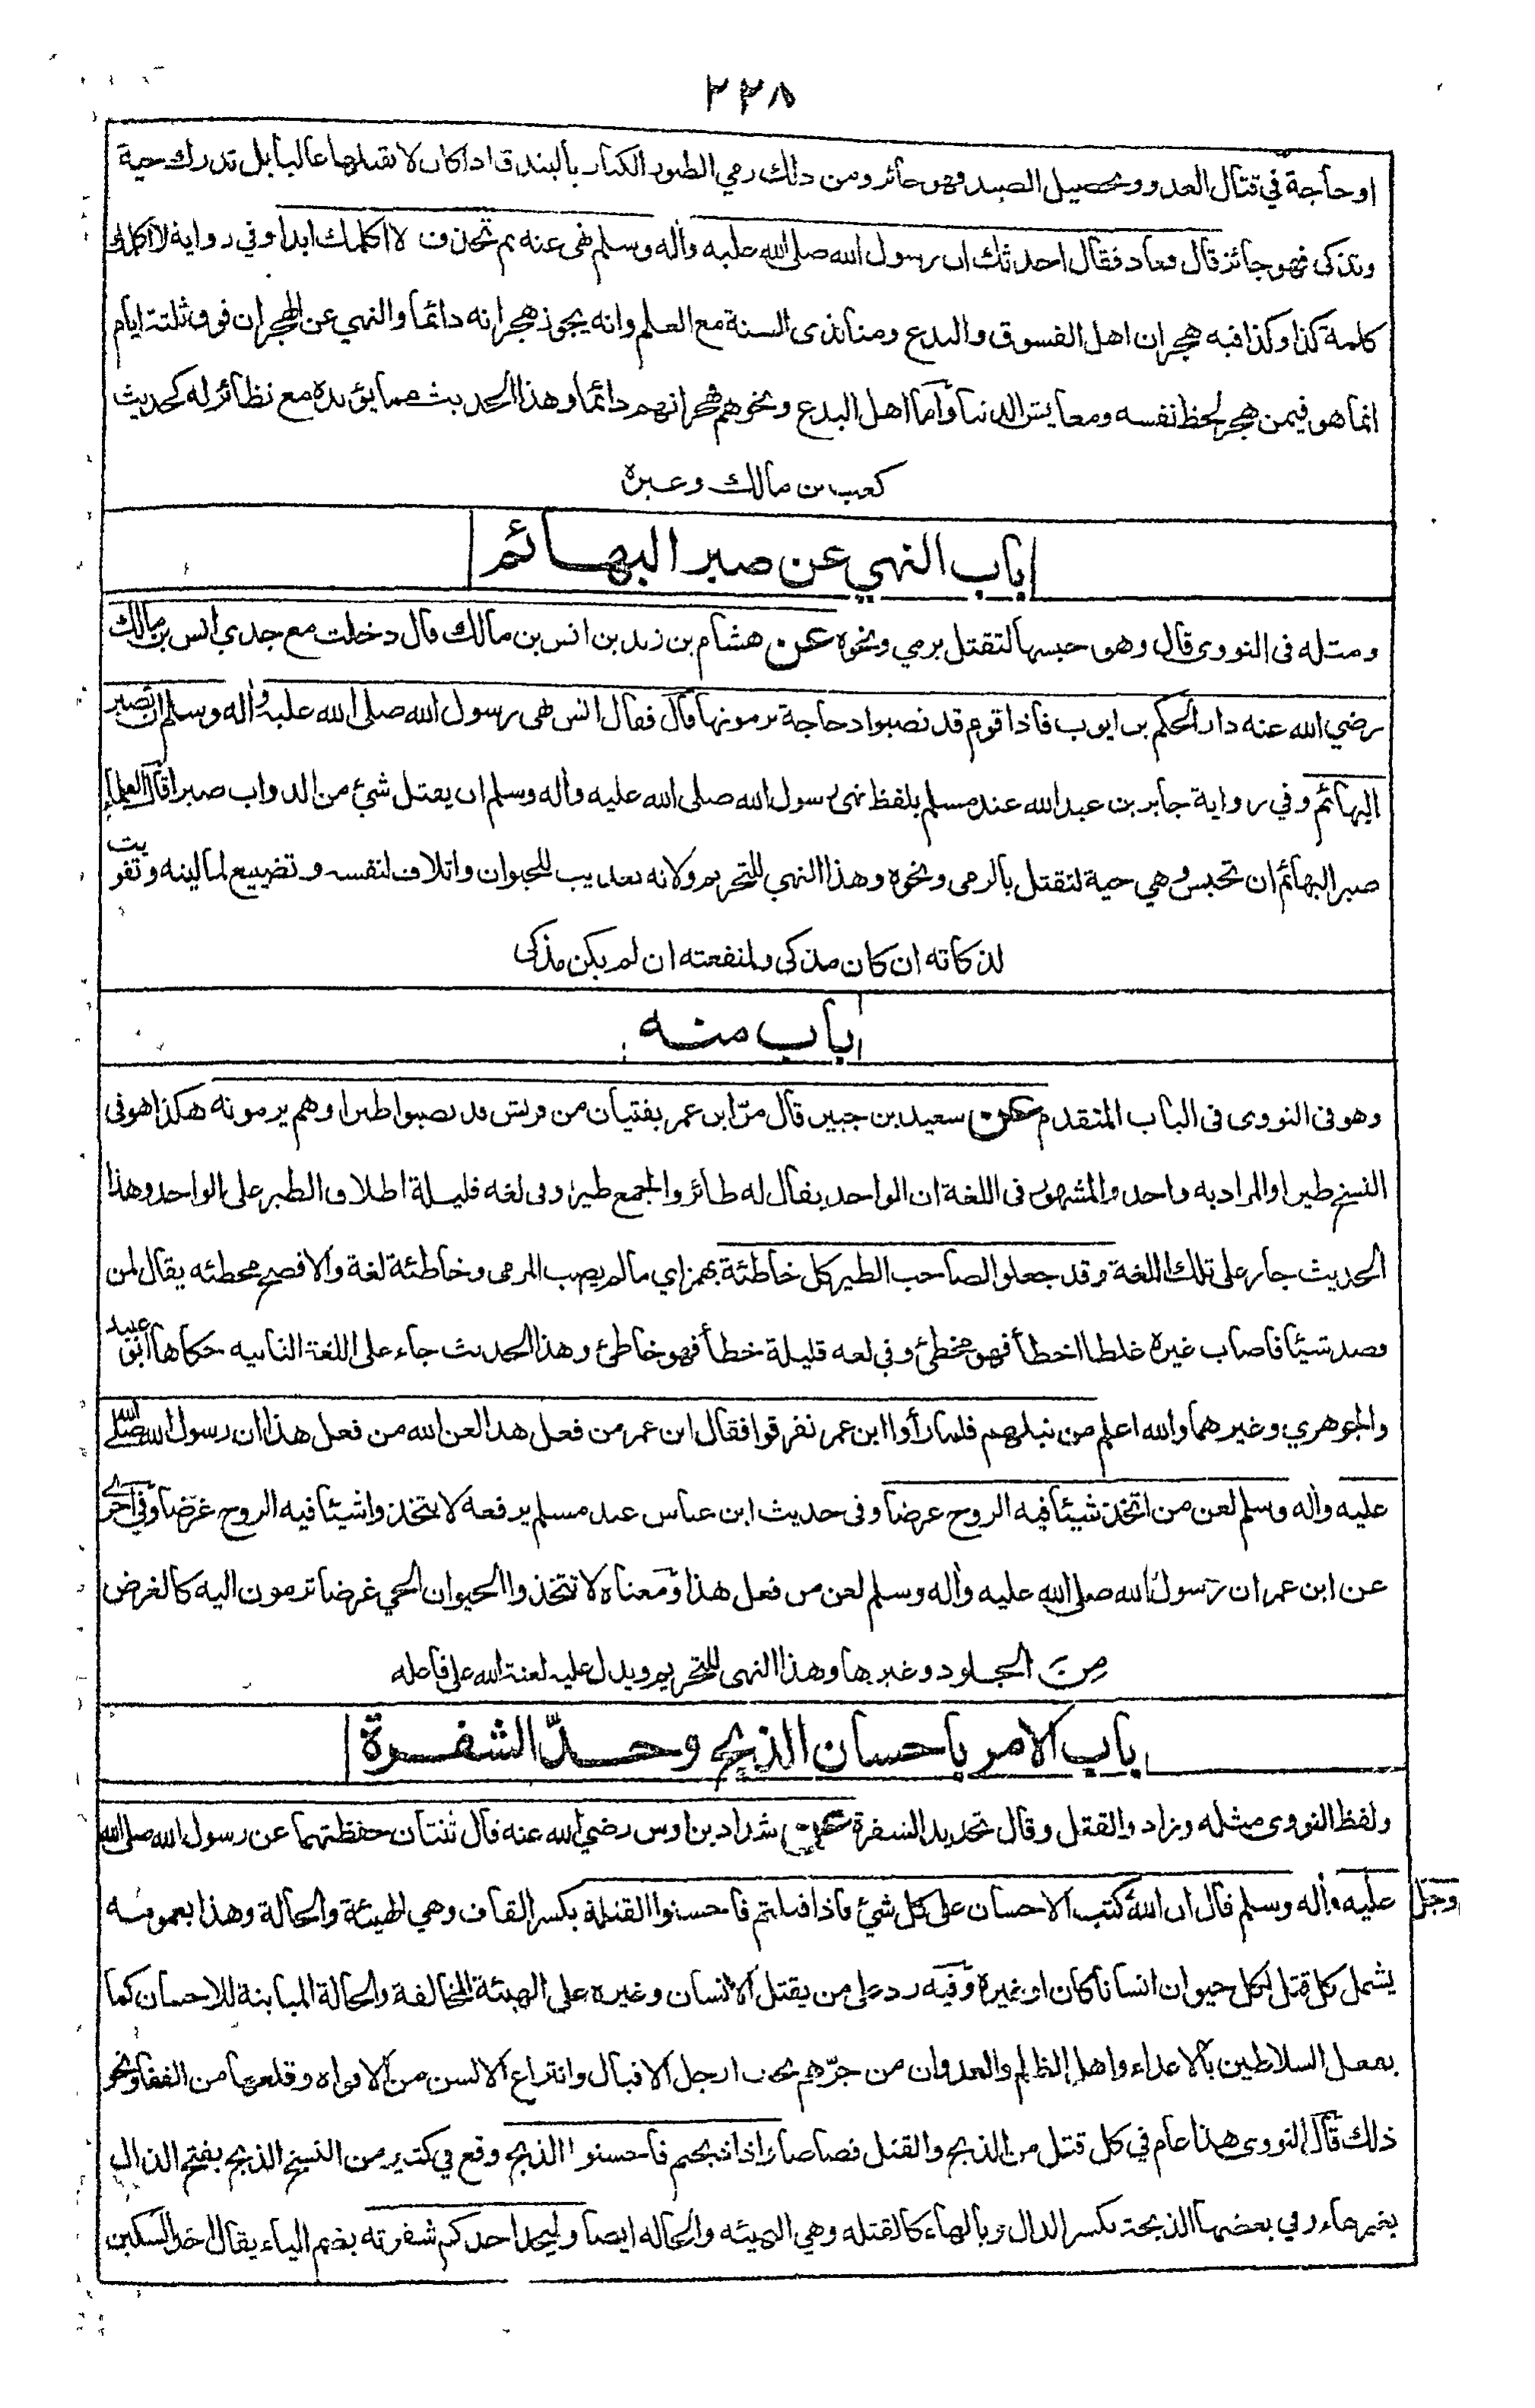 ٢٢٨
او حاجة في قتال العدو و تحصيل الصيد فهو جائز ومن ذلك رمي الطيور الكبار بالبندق اذا كان لا يقتلها غالبا بل تدرك حية
وتذكى فهو جائز قال فعاد فقال احدثك ان رسول الله صلى الله عليه وأله وسلم نهى عنه ثم تخذف لا اكلمك ابدا وفي رواية لا اكلمك
كلمة كذا وكذا فيه هجران اهل الفسوق والبدع ومنابذى السنة مع العلم وانه يجوز هجرانه دائما والنهي عن الهجران فوق ثلثة ايام
انما هو فيمن هجر لحظ نفسه ومعايش الدنيا وأما اهل البدع ونحوهم فهجرانهم دائما وهذا الحديث مما يؤيده مع نظائر له كحديث
كعب بن مالك وغيره
باب النهي عن صبر البهائم
ومثله فى النووى قال وهو حبسها لتقتل برمي ونحوه عن هشام بن زيد بن انس بن مالك قال دخلت مع جدي انس بن مالك
رضي الله عنه دار الحكم بن ايوب فاذا قوم قد نصبوا دجاجة يرمونها قال فقال انس نهى رسول الله صلى الله عليه وأله وسلم ان تصبر
البهائم وفي رواية جابر بن عبد الله عند مسلم بلفظ نهى رسول الله صلى الله عليه وأله وسلم ان يقتل شئ من الدواب صبرا قال العلماء
صبر البهائم ان تحبس وهي حية لتقتل بالرمى ونحوه وهذا النهي للتحريم ولانه تعذيب للحيوان واتلاف لنفسه وتضييع لماليته وتفويت
لذكاته ان كان مذكى ولمنفعته ان لم يكن مذكى
باب منه
وهو فى النووى فى الباب المتقدم عن سعيد بن جبير قال مرّ ابن عمر بفتيان من قريش قد نصبوا طيرا وهم يرمونه هكذا هو فى
النسخ طيرا والمراد به واحد والمشهور فى اللغة ان الواحد يقال له طائر والجمع طير وفى لغة قليلة اطلاق الطير على الواحد وهذا
الحديث جار على تلك اللغة وقد جعلوا لصاحب الطير كل خاطئة بهمز اي ما لم يصب المرمى وخاطئة لغة والافصح مخطئه يقال لمن
قصد شيئا فاصاب غيره غلطا اخطأ فهو مخطئ وفي لغة قليلة خطأ فهو خاطئ وهذا الحديث جاء على اللغة الثانيه حكاها ابو عبيد
والجوهري وغيرهما والله اعلم من نبلهم فلما رأوا ابن عمر تفرقوا فقال ابن عمر من فعل هذا لعن الله من فعل هذا ان رسول الله صلى الله
عليه وأله وسلم لعن من اتخذ شيئا فيه الروح غرضا وفى حديث ابن عباس عند مسلم يرفعه لا تتخذوا شيئا فيه الروح غرضا وفي اخرى
عن ابن عمر ان رسول الله صلى الله عليه وأله وسلم لعن من فعل هذا ومعناه لا تتخذوا الحيوان الحي غرضا ترمون اليه كالغرض
من الجلود وغيرها وهذا النهى للتحريم ويدل عليه لعنة الله على فاعله
باب الامر باحسان الذبح وحدّ الشفرة
ولفظ النووى مثله وزاد والقتل وقال تحديد الشفرة عن شداد بن اوس رضي الله عنه قال ثنتان حفظتهما عن رسول الله صلى الله
عليه وأله وسلم قال ان الله وجل كتب الاحسان على كل شئ فاذا قتلتم فاحسنوا القتلة بكسر القاف وهي الهيئة والحالة وهذا بعمومه
يشمل كل قتل لكل حيوان انسانا كان او غيره وفيه رد على من يقتل الانسان وغيره على الهيئة المخالفة والحالة المباينة للاحسان كما
يفعل السلاطين بالاعداء واهل الظلم والعدوان من جرّهم تحت ارجل الافيال وانتزاع الالسن من الافواه وقلعها من القفا ونحو
ذلك قال النووى هذا عام في كل قتل من الذبح والقتل قصاصا واذا ذبحتم فاحسنوا الذبح وقع في كثير من النسخ الذبح بفتح الذال
بغير هاء وفي بعضها الذبحة بكسر الذال وبالهاء كالقتله وهي الهيئه والحاله ايضا وليحد احدكم شفرته بضم الياء يقال احد السكين